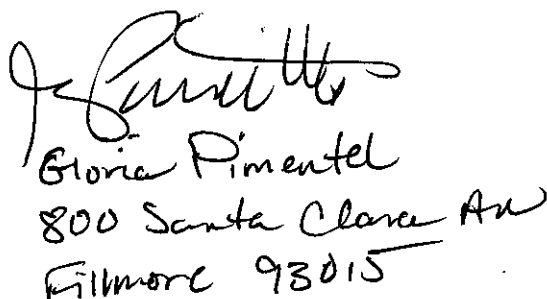 Gloria Pimentel
800 Santa Clara Av
Fillmore 93015